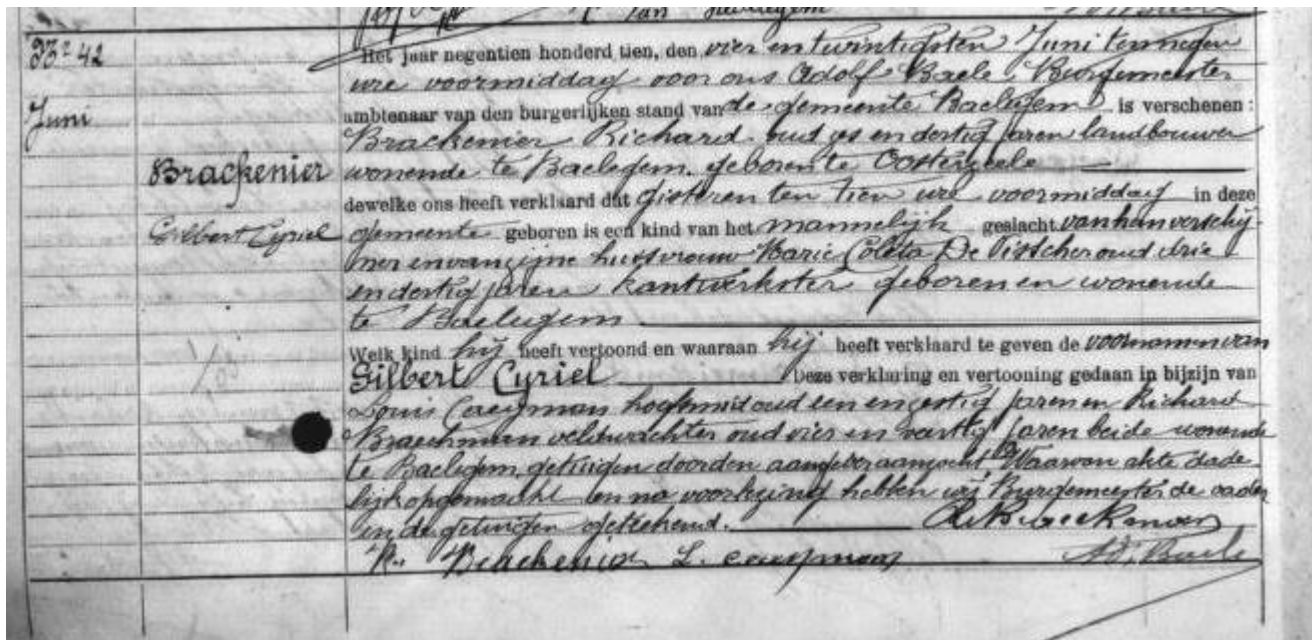 Van
Nr 42
Juni
Brackenier
Gilbert Cyriel
Het jaar negentien honderd tien, den vier en twintigsten Juni ten negen
ure voormiddag voor ons Adolf Baele, Burgemeester
ambtenaar van den burgerlijken stand van de gemeente Baelegem is verschenen:
Brackenier Richard oud zes en dertig jaren landbouwer
wonende te Baelegem, geboren te Oosterzeele
dewelke ons heeft verklaard dat gisteren ten tien ure voormiddag in deze
gemeente geboren is een kind van het mannelijk geslacht van han verschij-
ner en van zijne huisvrouw Marie Coleta De Visscher oud drie
en dertig jaren kantwerkster geboren en wonende
te Baelegem
Welk kind hij heeft vertoond en waaraan hij heeft verklaard te geven de voornamen van
Gilbert Cyriel Deze verklaring en vertooning gedaan in bijzijn van
Louis Caeyman hoefsmid oud een en zestig jaren en Richard
Braeckman veldwachter oud vier en veertig jaren beide wonende
te Baelegem, getuigen door den aangever aanzocht. Waarvan akte dade-
lijk opgemaakt en na voorlezing hebben wij Burgemeester de vader
en de getuigen geteekend. R Braeckman
R. Brackenier L. Caeyman Ad. Baele